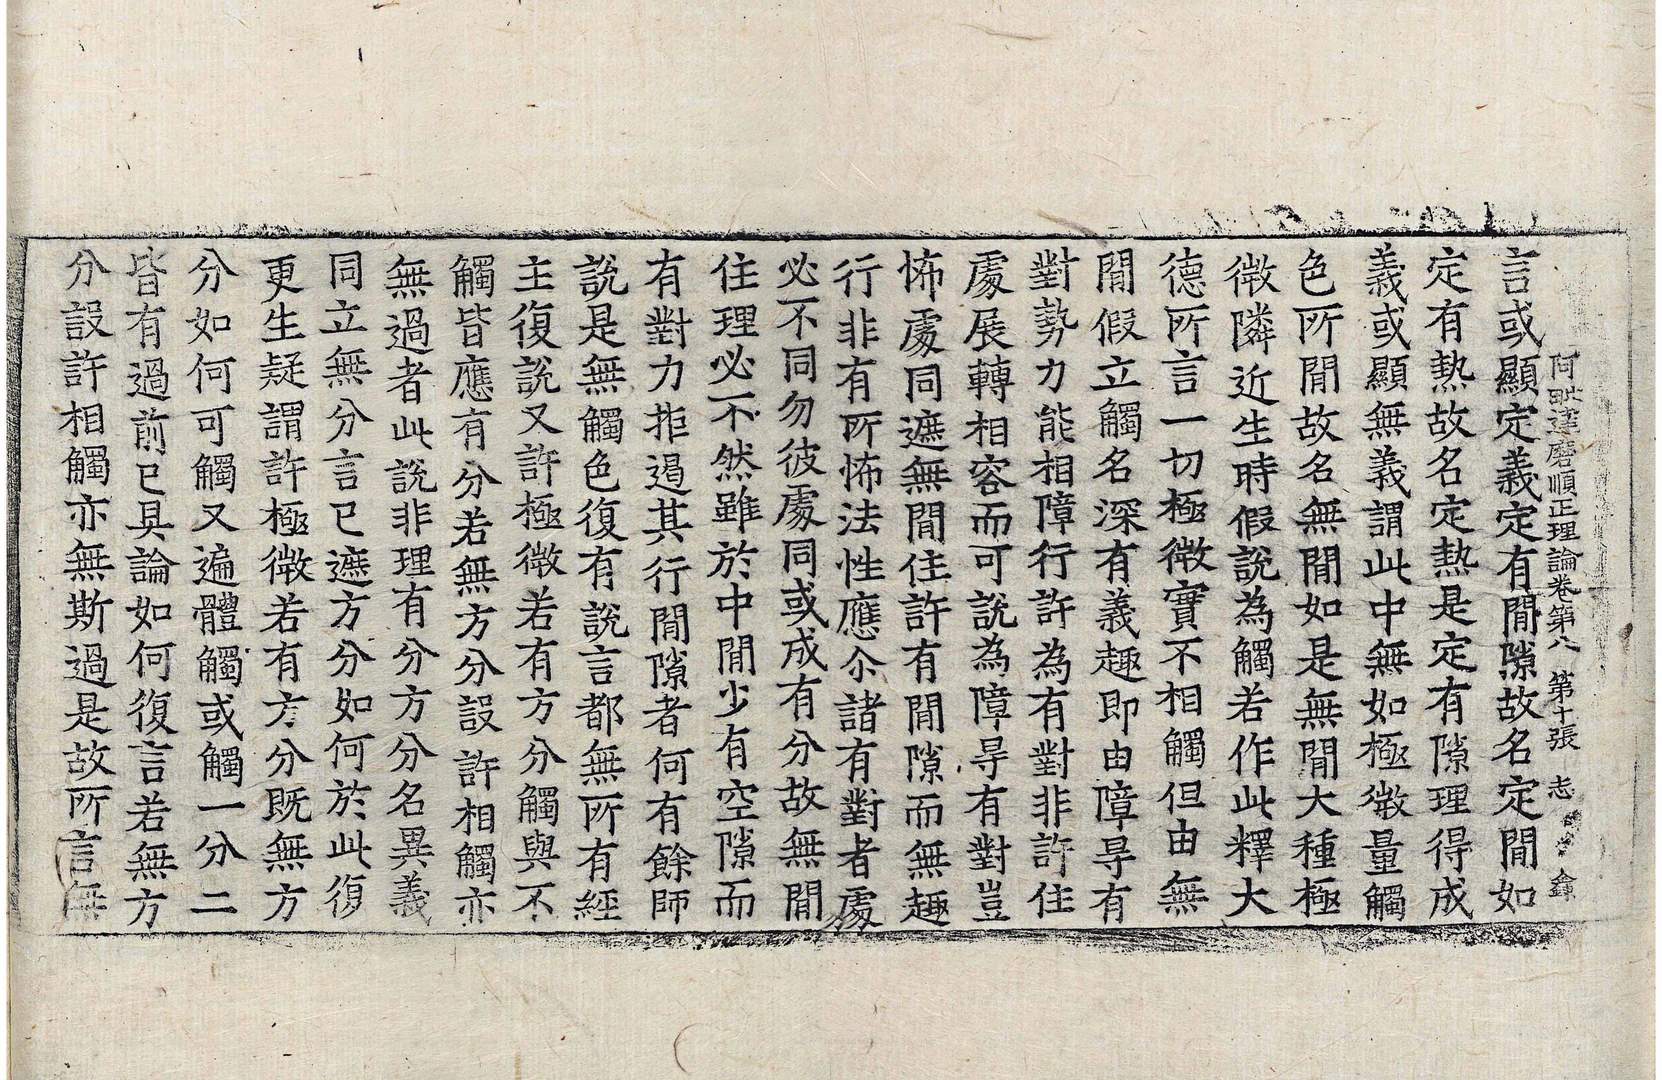 阿毗達磨順正理論卷第八 第十張 志
言或顯定義定有閒隙故名定閒如
定有熱故名定熱是定有隙理得成
義或顯無義謂此中無如極微量觸
色所閒故名無閒如是無閒大種極
微隣近生時假說為觸若作此釋大
德所言一切極微實不相觸但由無
閒假立觸名深有義趣即由障㝵有
對勢力能相障行許為有對非許住
處展轉相容而可說為障㝵有對豈
怖處同遮無閒住許有閒隙而無趣
行非有所怖法性應尒諸有對者處
必不同勿彼處同或成有分故無閒
住理必不然雖於中閒少有空隙而
有對力拒遏其行閒隙者何有餘師
說是無觸色復有說言都無所有經
主復說又許極微若有方分觸與不
觸皆應有分若無方分設許相觸亦
無過者此說非理有分方分名異義
同立無分言已遮方分如何於此復
更生疑謂許極微若有方分既無方
分如何可觸又遍體觸或觸一分二
皆有過前已具論如何復言若無方
分設許相觸亦無斯過是故所言無